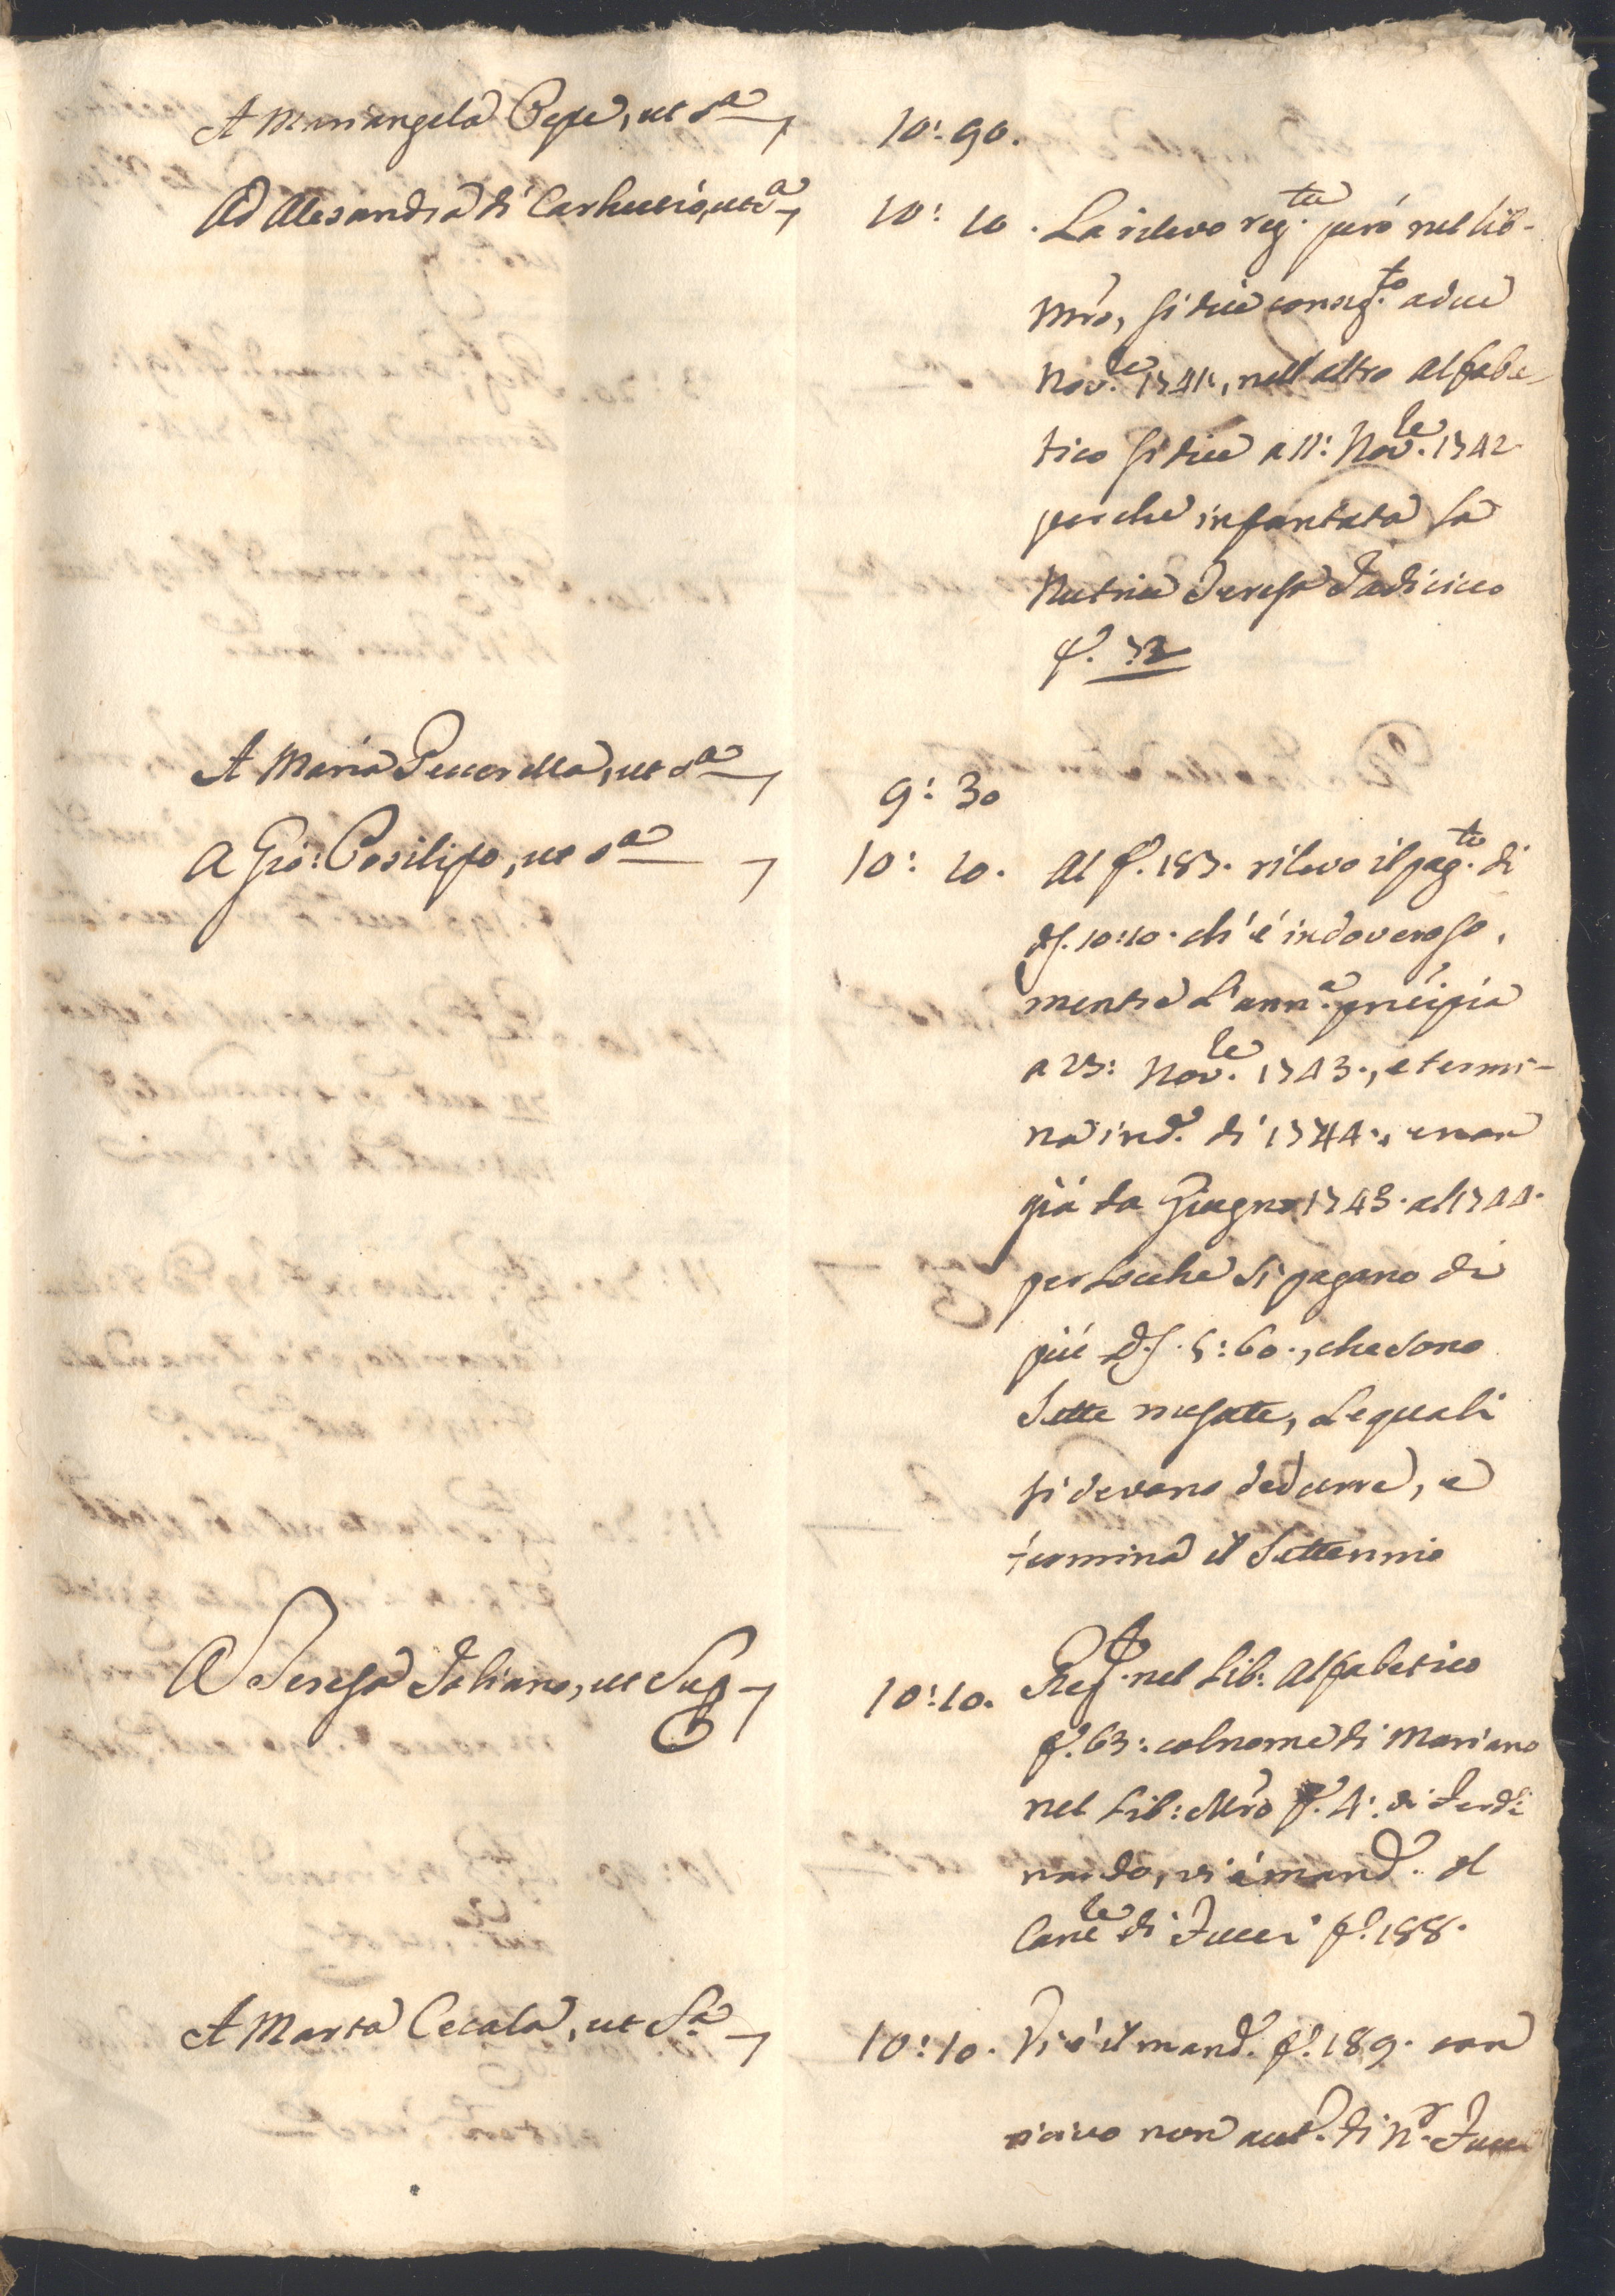 A Mariangela Pepe, ut s.ª 10:90.
Ad Alesandra di Carluccio, ut s.ª 10:10. La rilevo reg.ta però nel lib.
Mrõ, si dice conseg.to a due
Nov.le 1741., nell'altro alfabe-
tico si dice a 11: Nov.le 1742
perche infantata la
Nutrice Teresa Iadicicco
f. 72
A Maria Peccerella, ut s.ª 9:30
A Gio: Posilipo, ut s.ª 10:10. Al f. 187. rilevo il pag.to di
d. 10:10. ch'è indoveroso,
mentre l'ann.ª principia
a 25: Nov.le 1743., e termi-
na ind. di 1744., e non
già da Giugno 1743. al 1744.
perlocche si pagano di
più d. 5:60., che sono
Sette mesate, le quali
si devono dedurre, e
termina il Settennio
A Teresa Italiano, ut Sup. 10:10. Reg.to nel Lib: Alfabetico
f. 63: col nome di Mariano
nel Lib: Mrõ f. 4: di Ferdi
nando, vi è mand. el
Canc.le di Iucci f. 188.
A Marta Cecala, ut S.ª 10:10. Vi è il mand. f. 189. con
ricivo non aut. di N.r Iucci